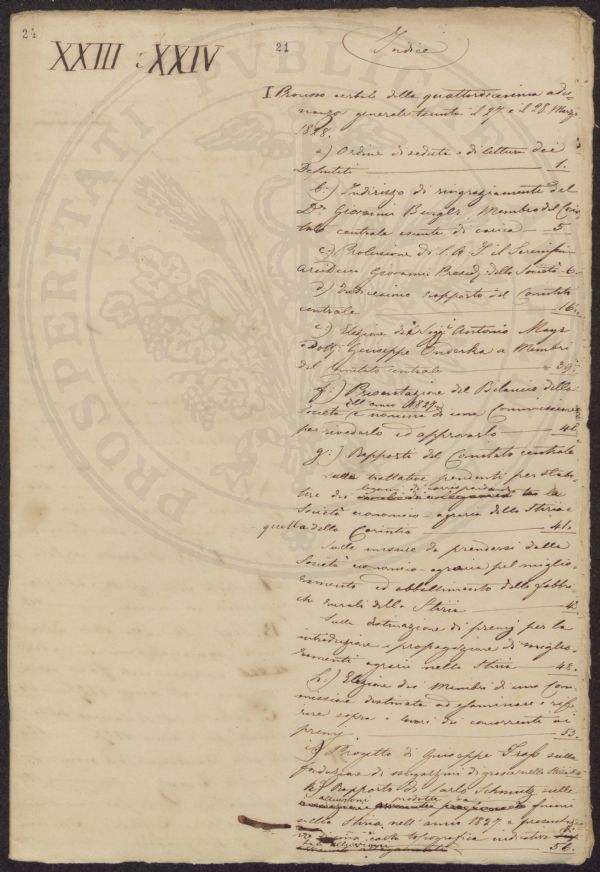 24
XXIII e XXIV
21
Indice
I Processo verbale della quattordicesima adu-
nanza generale tenuta il 27. e il 28. Marzo
1828.
a) Ordine di seduta e di lettura dei
Deputati 1.
b.) Indirizzo di ringraziamento del
Dr. Giovanni Burger, Membro del Comi-
tato centrale esente di carica 5
c.) Prolusione di S. A. I. il Serenissimo
Arciduca Giovanni Presid. della Società 6.
d.) Undicesimo rapporto del Comitato
centrale 16.
e.) Elezione dei Sigg. Antonio Mayr
e Dott. Giuseppe Onderka a Membri
del Comitato centrale 39.
f.) Presentazione del Bilancio della
dell'anno 1827
Società e nomina di una Commissione
per rivederlo ed approvarlo
g.) Rapporti del Comitato centrale
Sulle trattative pendenti per stabi-
legami di corrispondenza
lire dei tra la
Società economico-agraria della Stiria e
quella della Carintia 41.
Sulle misure da prendersi dalla
Società economico-agraria pel miglio-
ramento ed abbellimento delle fabbri-
che rurali della Stiria
Sulla destinazione di premj per la
introduzione e propagazione di miglio-
ramenti agrarii nella Stiria 48.
h.) Elezione dei Membri di una Com-
missione destinata ad esaminare e rife-
rire sopra i lavori dei concorrenti ai
premj 53.
i.) Progetto di Giuseppe sulla
fondazione di magazzini di nella Stiria
k.) Rapporto di Carlo Schmutz sulle
alluvioni prodotte da
fiumi
nella Stiria nell'anno 1827 e
carta topografica indicativa
tali alluvioni 56.
PROSPERITATI PUBLICAE